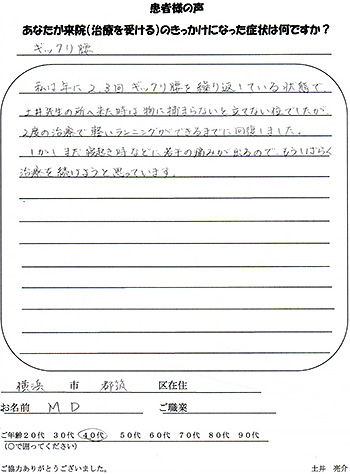 患者様の声
あなたが来院(治療を受ける)のきっかけになった症状は何ですか?
ギックリ腰
私は年に2,3回ギックリ腰を繰り返している状態で、
土井先生の所へ来た時は物に捕まらないと立てない位でしたが
2度の治療で軽いランニングができるまでに回復しました。
しかしまだ寝起き時などに若干の痛みが出るので、もうしばらく
治療を続けようと思っています。
横浜 市 都筑 区在住
お名前 M D ご職業
ご年齢20代 30代 40代 50代 60代 70代 80代 90代
(○で囲ってください)
ご協力ありがとうございました。 土井 亮介